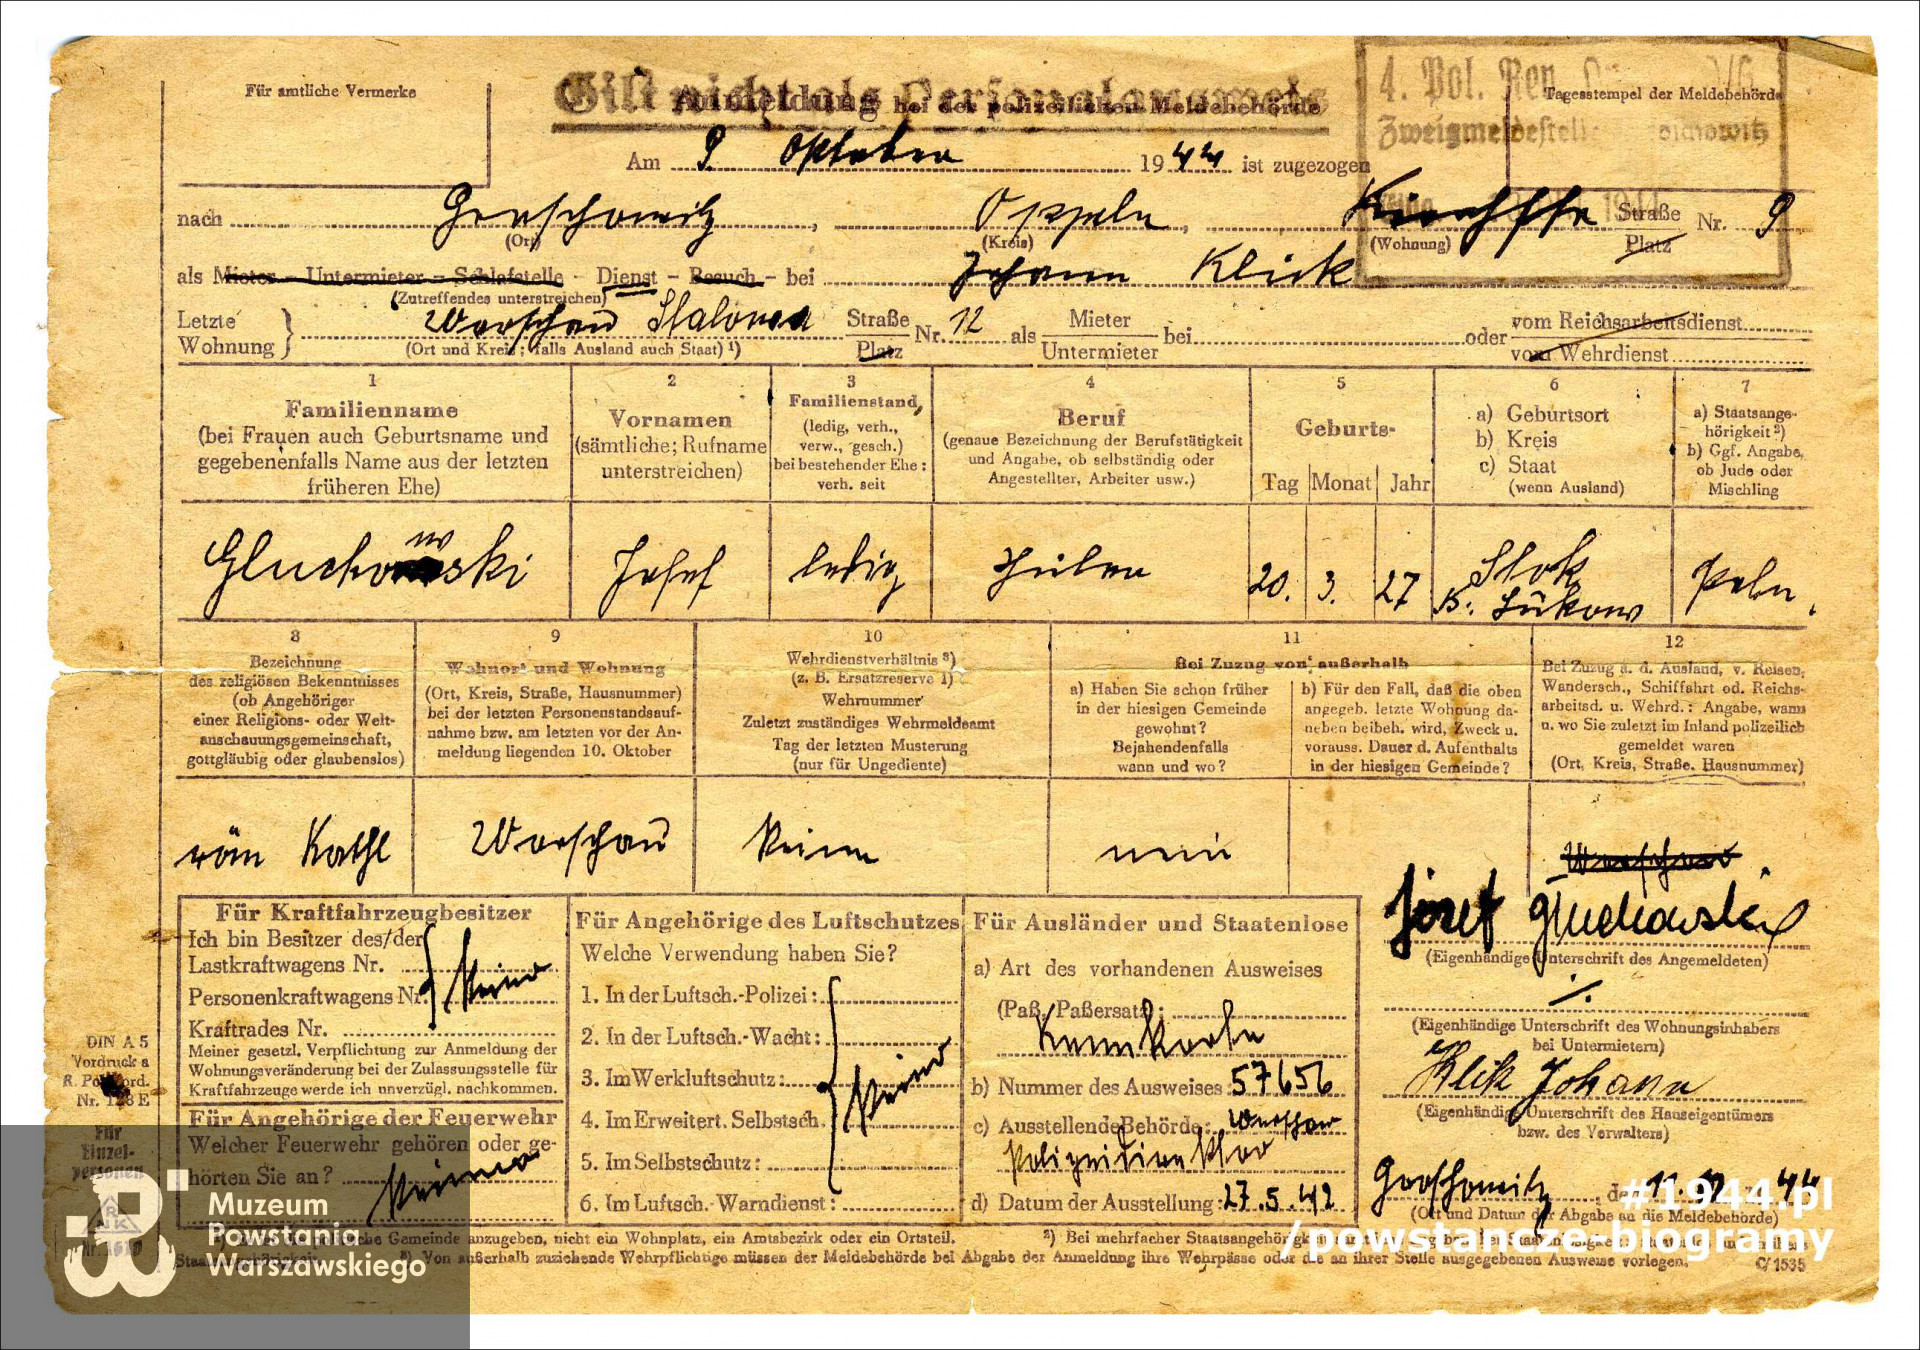 Für amtliche Vermerke
Gilt nicht als Personalausweis
Anmeldung bei der polizeilichen Meldebehörde
4. Pol. Rev.
Tagesstempel der Meldebehörde
Zweigmeldestelle
Am 9 Oktober 1944 ist zugezogen
nach Groschowitz, Oppeln, Kirchstr Straße Platz Nr. 9
(Ort) (Kreis) (Wohnung)
als Mieter – Untermieter – Schlafstelle - Dienst – Besuch – bei Johann Klick
(Zutreffendes unterstreichen)
Letzte Wohnung } Warschau Stalowa Straße Platz Nr. 12 als Mieter Untermieter bei oder vom Reichsarbeitsdienst vom Wehrdienst
(Ort und Kreis; falls Ausland auch Staat) ¹)
1 2 3 4 5 6 7
Familienname
(bei Frauen auch Geburtsname und
gegebenenfalls Name aus der letzten
früheren Ehe)
Vornamen
(sämtliche; Rufname
unterstreichen)
Familienstand,
(ledig, verh.,
verw., gesch.)
bei bestehender Ehe:
verh. seit
Beruf
(genaue Bezeichnung der Berufstätigkeit
und Angabe, ob selbständig oder
Angestellter, Arbeiter usw.)
Geburts-
Tag Monat Jahr
a) Geburtsort
b) Kreis
c) Staat
(wenn Ausland)
a) Staatsange-
hörigkeit ²)
b) Ggf. Angabe,
ob Jude oder
Mischling
Gluchowski Josef ledig Schüler 20. 3. 27 Stok Polen.
K. Lükow
8 9 10 11 12
Bezeichnung
des religiösen Bekenntnisses
(ob Angehöriger
einer Religions- oder Welt-
anschauungsgemeinschaft,
gottgläubig oder glaubenslos)
Wohnort und Wohnung
(Ort, Kreis, Straße, Hausnummer)
bei der letzten Personenstandsauf-
nahme bzw. am letzten vor der An-
meldung liegenden 10. Oktober
Wehrdienstverhältnis ³)
(z. B. Ersatzreserve 1)
Wehrnummer
Zuletzt zuständiges Wehrmeldeamt
Tag der letzten Musterung
(nur für Ungediente)
Bei Zuzug von außerhalb
a) Haben Sie schon früher
in der hiesigen Gemeinde
gewohnt?
Bejahendenfalls
wann und wo?
b) Für den Fall, daß die oben
angegeb. letzte Wohnung da-
neben beibeh. wird, Zweck u.
vorauss. Dauer d. Aufenthalts
in der hiesigen Gemeinde?
Bei Zuzug a. d. Ausland, v. Reisen,
Wandersch., Schiffahrt od. Reichs-
arbeitsd. u. Wehrd.: Angabe, wann
u. wo Sie zuletzt im Inland polizeilich
gemeldet waren
(Ort, Kreis, Straße, Hausnummer)
röm Kathl Warschau Keine nein Warschau
Für Kraftfahrzeugbesitzer
Ich bin Besitzer des/der
Lastkraftwagens Nr.
Personenkraftwagens Nr.
Keine
Kraftrades Nr.
Meiner gesetzl. Verpflichtung zur Anmeldung der
Wohnungsveränderung bei der Zulassungsstelle für
Kraftfahrzeuge werde ich unverzügl. nachkommen.
Für Angehörige der Feuerwehr
Welcher Feuerwehr gehören oder ge-
hörten Sie an?
Für Angehörige des Luftschutzes
Welche Verwendung haben Sie?
1. In der Luftsch.-Polizei:
2. In der Luftsch.-Wacht:
3. Im Werkluftschutz:
4. Im Erweitert. Selbstsch.
5. Im Selbstschutz:
6. Im Luftsch.-Warndienst:
Keine
Für Ausländer und Staatenlose
a) Art des vorhandenen Ausweises
(Paß, Paßersatz):
Kennkarte
b) Nummer des Ausweises: 57656
c) Ausstellende Behörde: Warschau
d) Datum der Ausstellung: 27.5.42
Józef Gluchowski
(Eigenhändige Unterschrift des Angemeldeten)
./.
(Eigenhändige Unterschrift des Wohnungsinhabers
bei Untermietern)
Klik Johann
(Eigenhändige Unterschrift des Hauseigentümers
bzw. des Verwalters)
Groschowitz, d. 44
(Ort und Datum der Abgabe an die Meldebehörde)
DIN A 5
Vordruck a
Nr. 128 E
Für
Einzel-
personen
Gemeinde anzugeben, nicht ein Wohnplatz, ein Amtsbezirk oder ein Ortsteil. ²) Bei mehrfacher Staatsangehörigkeit
³) Von außerhalb zuziehende Wehrpflichtige müssen der Meldebehörde bei Abgabe der Anmeldung ihre Wehrpässe oder die an ihrer Stelle ausgegebenen Ausweise vorlegen.
C/1535
Muzeum
Powstania
Warszawskiego
#1944.pl
/powstancze-biogramy